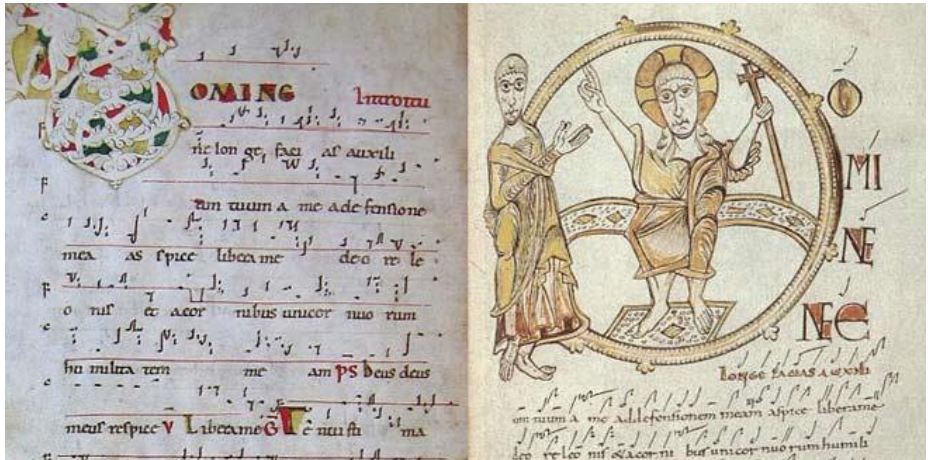 OMINE Introitu
ne lon ge faci as auxili
um tuum a me ad e fensione
mea as spice libera me de o re le
o nis et a cor nibus unicor nuo rum
hu milita tem me am PS Deus deus
meus respice V Libera me G Te nuisti ma
O
MI
NE
NE
longe facias auxili
um tuum a me ad defensionem meam aspice libera me
leo re leo nis & a corni bus unicor nuo rum humili